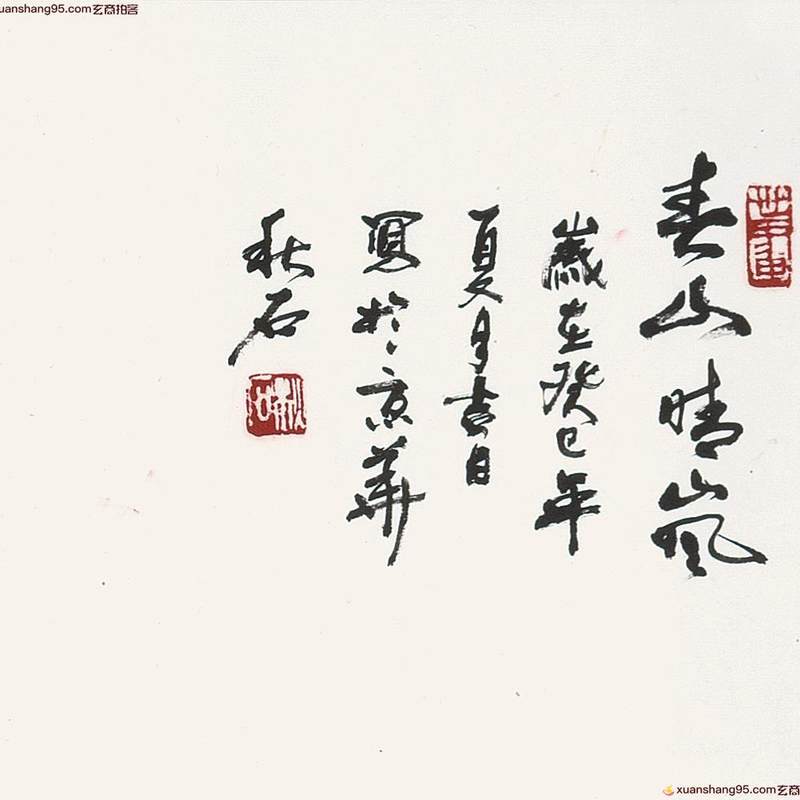 xuanshang95.com玄商拍客
春山晴嵐
歲在癸巳年
夏月吉日
寫於京華
秋石
秋石
xuanshang95.com玄商